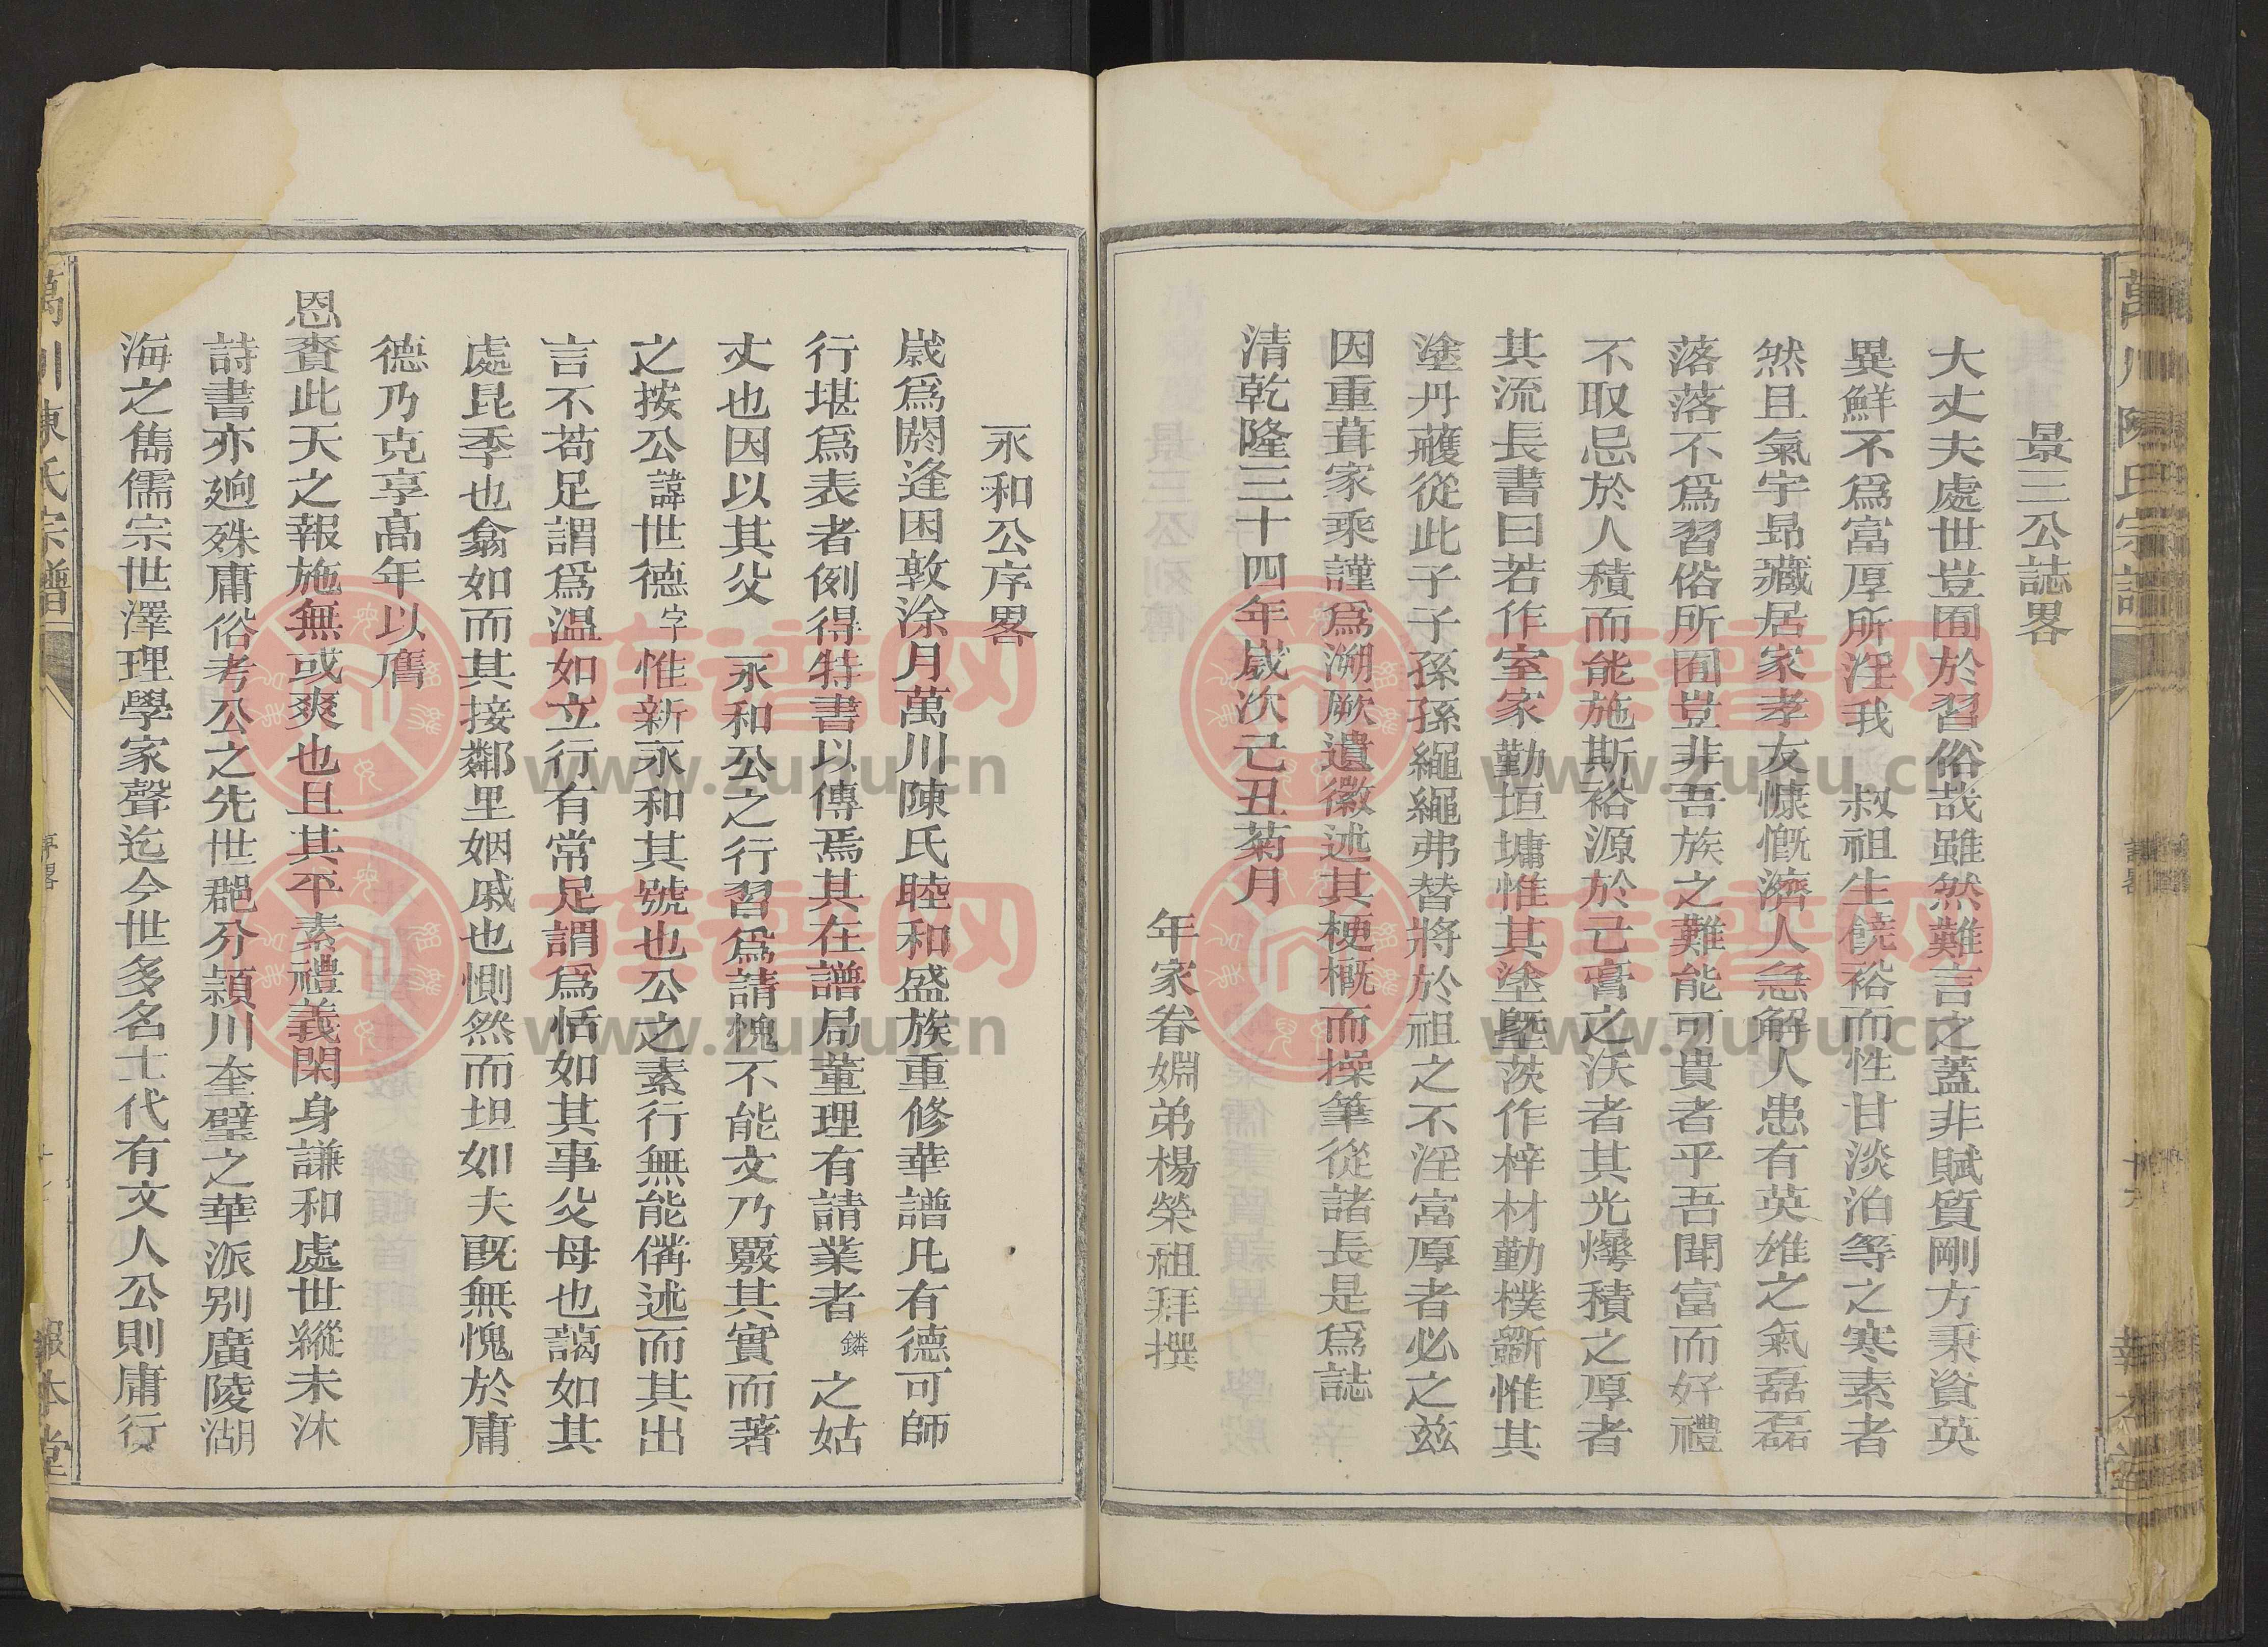 萬川陳氏宗譜
誌畧
十六
報本堂
景三公誌畧
大丈夫處世豈囿於習俗哉雖然難言之蓋非賦質剛方秉資英
異鮮不爲富厚所淫我 叔祖生饒裕而性甘淡泊等之寒素者
然且氣宇昻藏居家孝友慷慨濟人急解人患有英雄之氣磊磊
落落不爲習俗所囿豈非吾族之難能可貴者乎吾聞富而好禮
不取忌於人積而能施斯裕源於己膏之沃者其光爗積之厚者
其流長書曰若作室家勤垣墉惟其塗塈茨作梓材勤樸斲惟其
塗丹雘從此子子孫孫繩繩弗替將於祖之不淫富厚者必之兹
因重葺家乘謹爲溯厥遺徽述其梗概而操筆從諸長是爲誌
清乾隆三十四年歲次己丑菊月
年家眷姻弟楊榮祖拜撰
永和公序畧
歲爲閼逢困敦涂月萬川陳氏睦和盛族重修華譜凡有德可師
行堪爲表者例得特書以傳焉其在譜局董理有請業者鏻之姑
丈也因以其父 永和公之行習爲請愧不能文乃覈其實而著
之按公諱世德字惟新永和其號也公之素行無能備述而其出
言不苟足謂爲溫如立行有常足謂爲恬如其事父母也藹如其
處昆季也翕如而其接鄰里姻戚也惻然而坦如夫旣無愧於庸
德乃克享高年以膺
恩賚此天之報施無或爽也且其平素禮義閑身謙和處世縱未沐
詩書亦逈殊庸俗考公之先世郡分潁川奎璧之華派別廣陵湖
海之雋儒宗世澤理學家聲迄今世多名士代有文人公則庸行
萬川陳氏宗譜
序畧
報本堂
族譜网
www.zupu.cn
族譜网
www.zupu.cn
族譜网
www.zupu.cn
族譜网
www.zupu.cn